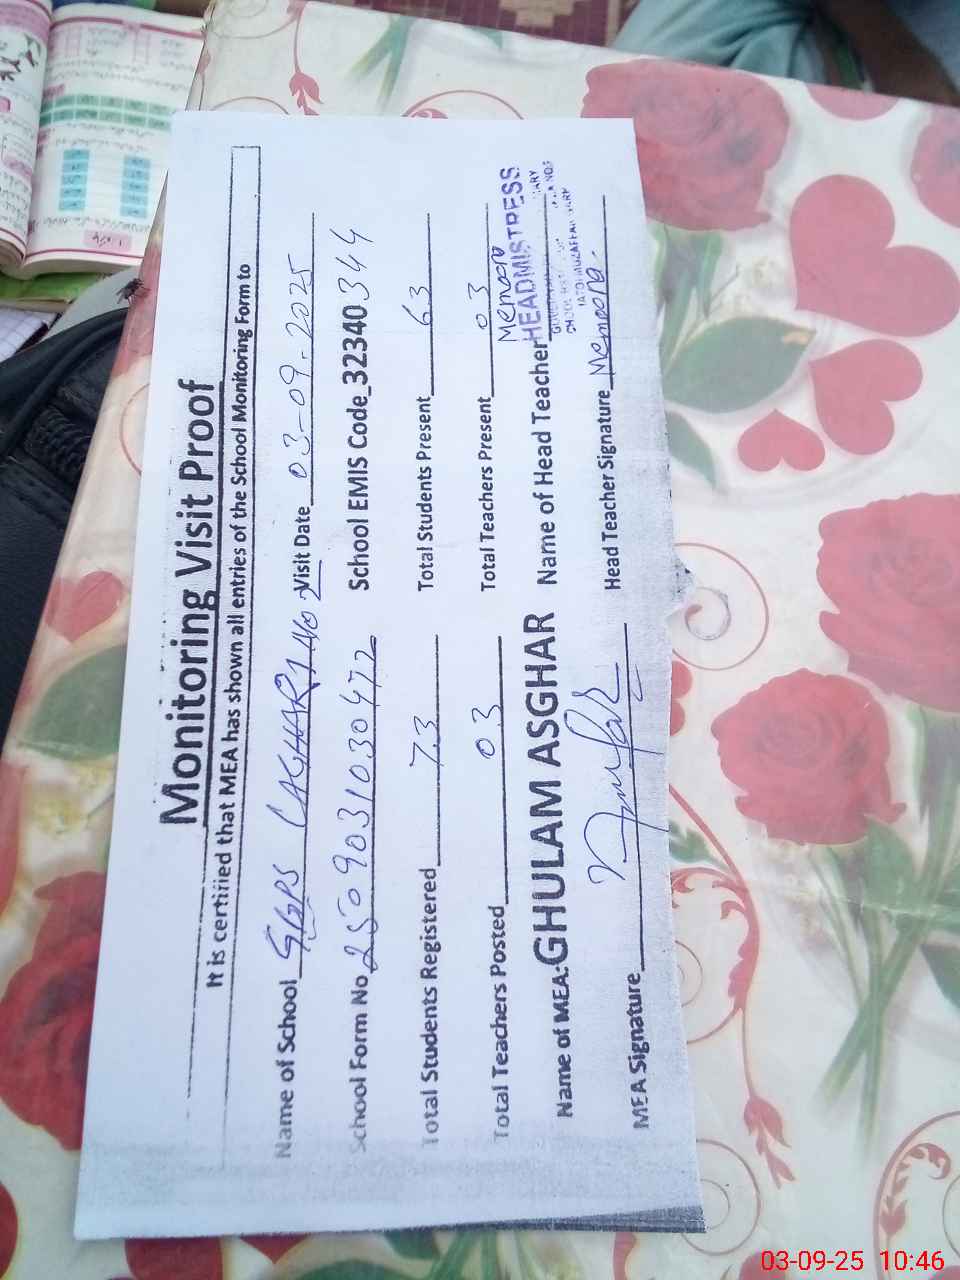 Monitoring Visit Proof
It is certified that MEA has shown all entries of the School Monitoring Form to
Name of School GGPS LAGHARI No 2 Visit Date 03-09-2025
School Form No 2509031030472 School EMIS Code 32340344
Total Students Registered 73 Total Students Present 63
Total Teachers Posted 03 Total Teachers Present 03
Memoona
Name of MEA: GHULAM ASGHAR Name of Head Teacher HEADMISTRESS
MEA Signature Head Teacher Signature Memoona
03-09-25 10:46